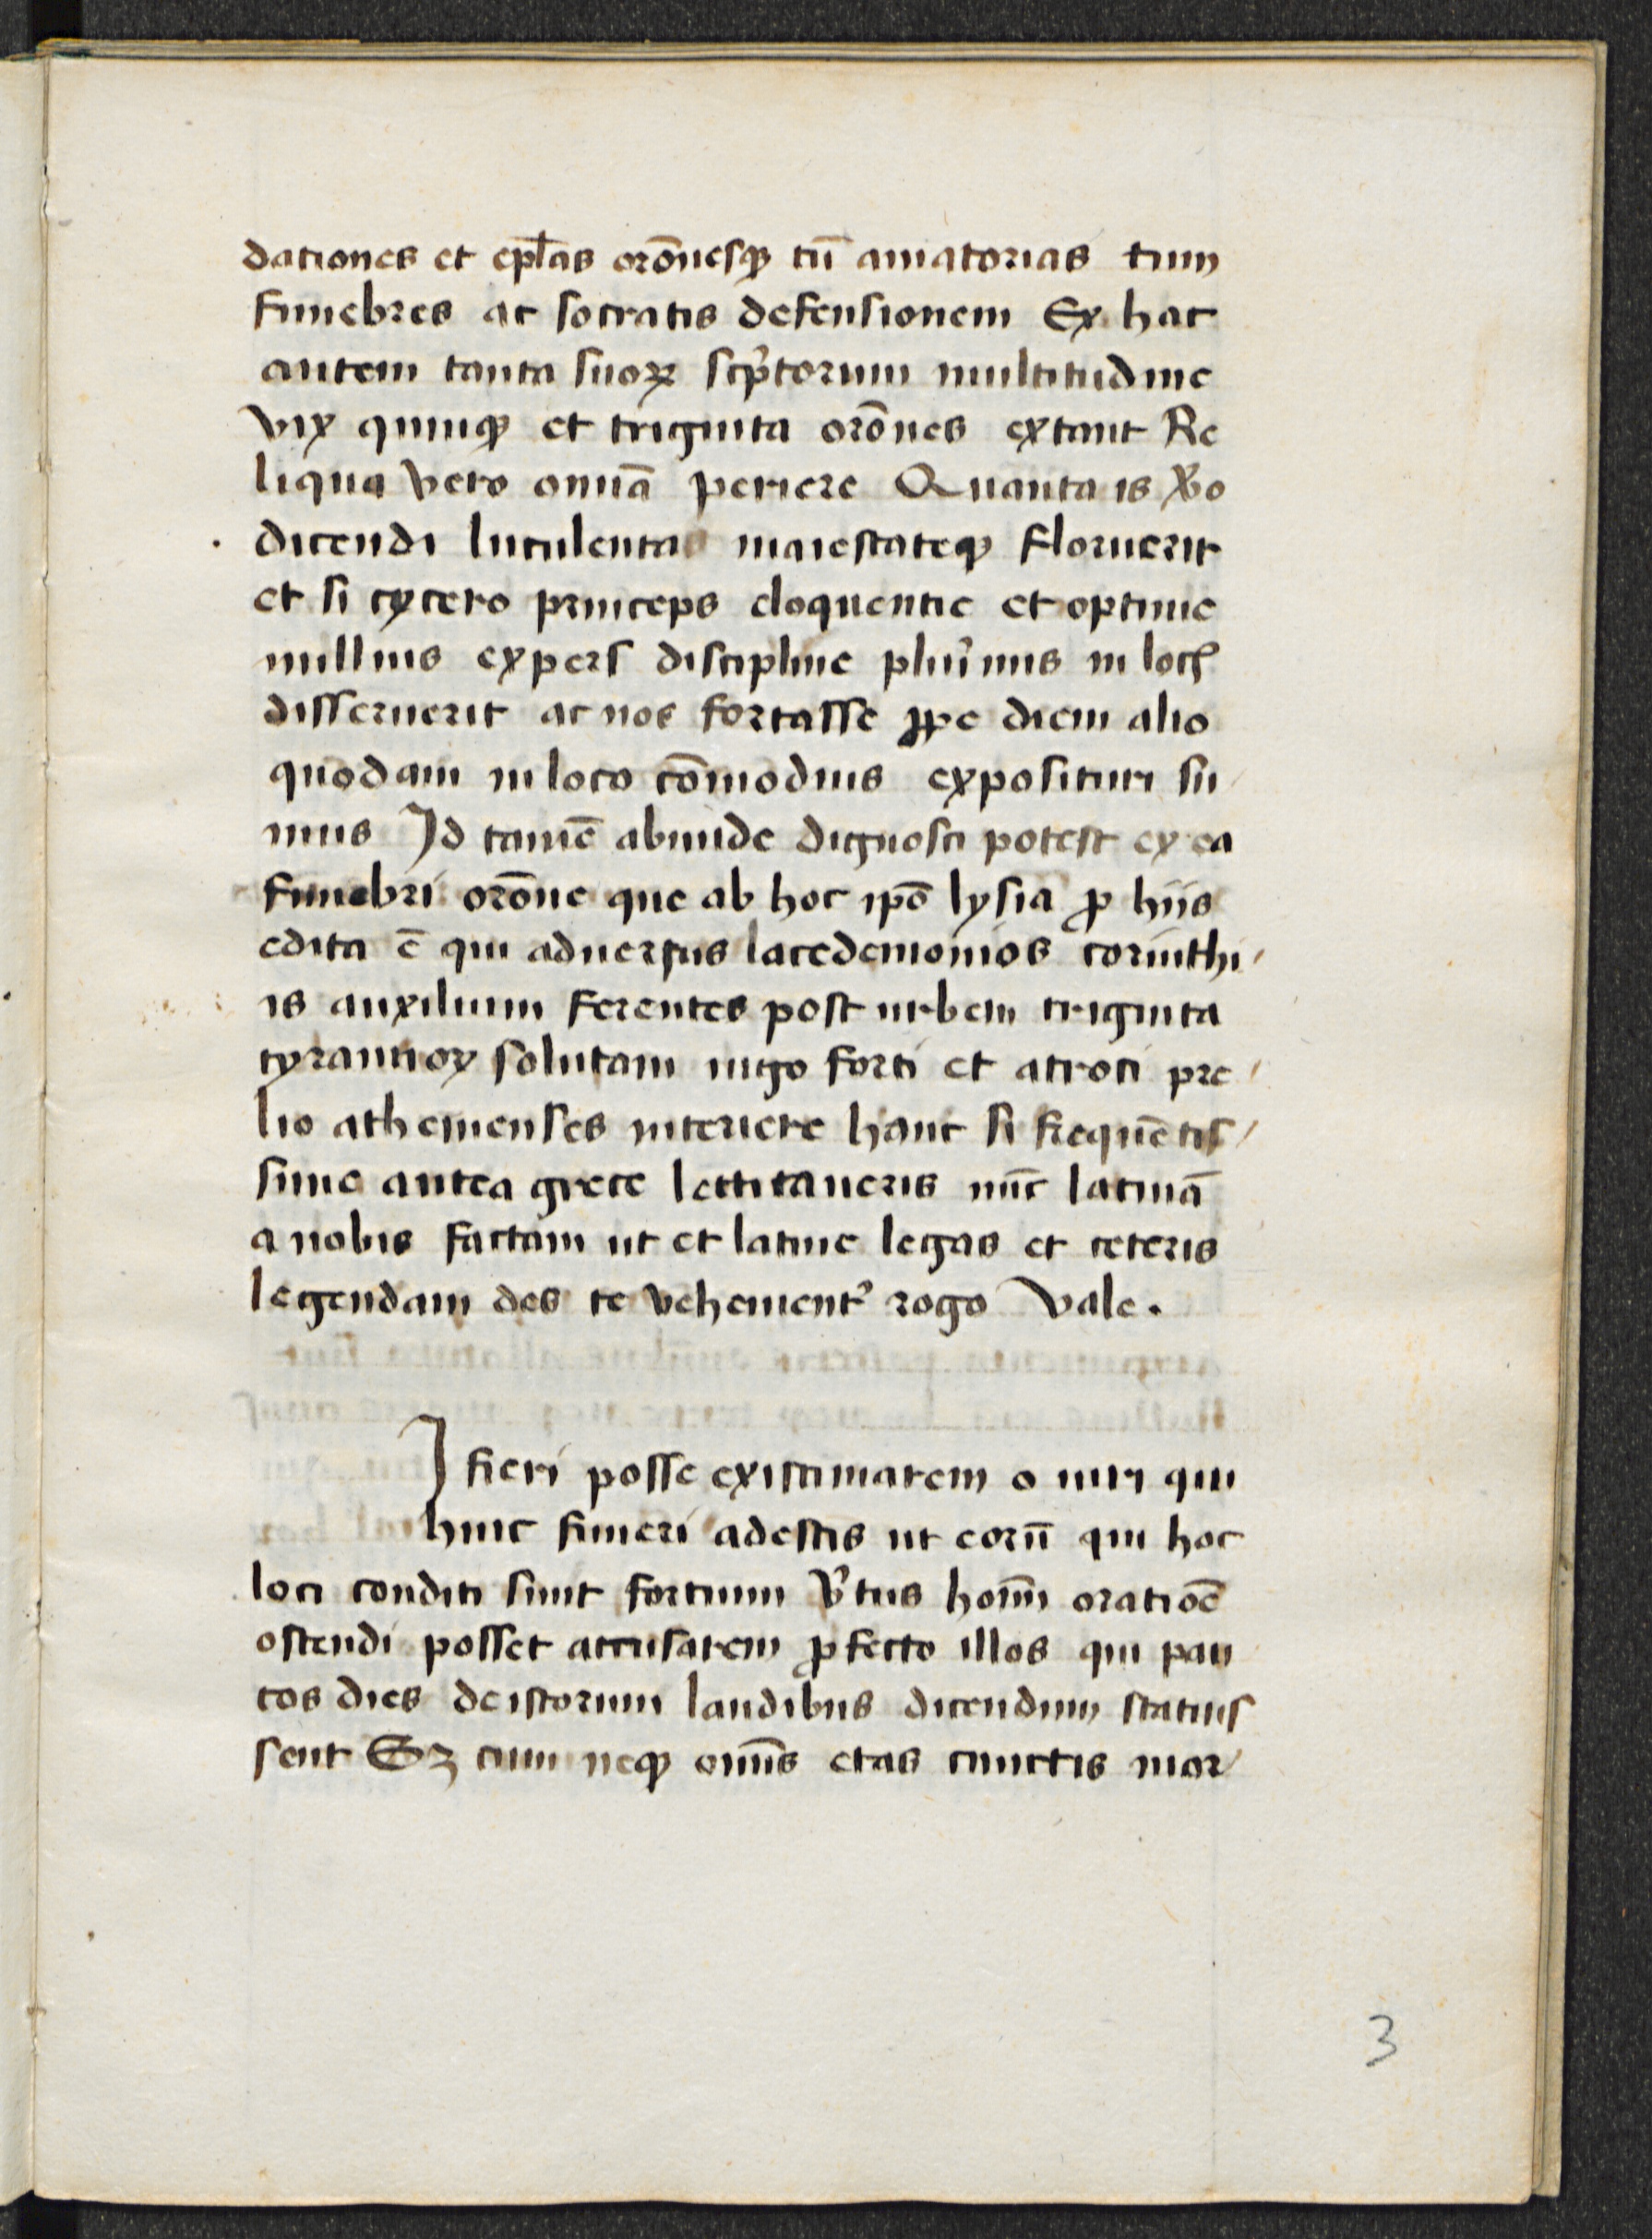 dationes et ep̄l̄as or̄onesqꝫ tū amatorias tum
funebres ac socratis defensionem Ex hac
autem tanta suoꝝ scp̄torum multitudine
vix quinqꝫ et triginta or̄ones extant Re
liqua vero omīa periere Quanta is v̓o
dicendi luculenta maiestateqꝫ floruerit
et si cycero princeps eloquentie et optime
nullius expers discipline plur̄imis in locꝭ
disseruerit ac nos fortasse ꝓpe diem alio
quodam in loco cōmodius exposituri su
mus Id tamē abunde dignosci potest ex ea
funebri or̄one que ab hoc ip̄o lysia ꝓ hijs
edita ē qui aduersus lacedemonios corinthi/
is auxilium ferentes post urbem triginta
tyrannoꝝ solutam iugo forti et atroci pre/
lio athenienses interiere hanc si frequētis/
sime antea grece lectitaueris nūc latinā
a nobis factam ut et latine legas et ceteris
legendam des te vehement̓ rogo Vale.
I fieri posse existimarem o uiri qui
huic funeri adestis ut eorū qui hoc
loci conditi sunt fortium v̓tus homī oratiōe
ostendi posset accusarem ꝓfecto illos qui pau
cos dies de istorum laudibus dicendum statuis
sent Sꝫ cum neqꝫ om̄is etas cunctis mor/
3